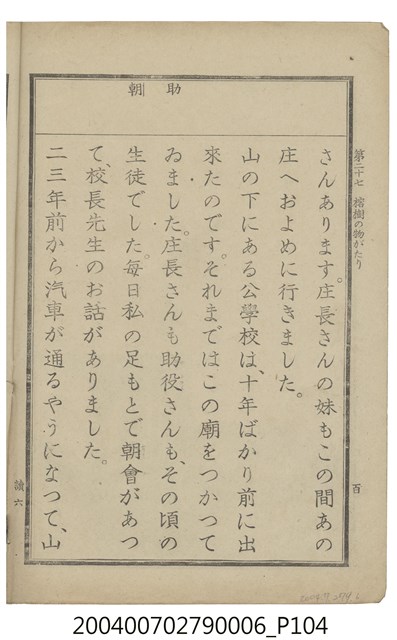 第二十七 榕樹の物がたり
助
朝
さんあります。庄長さんの妹もこの間あの
庄へおよめに行きました。
山の下にある公學校は、十年ばかり前に出
來たのです。それまではこの廟をつかつて
ゐました。庄長さんも助役さんも、その頃の
生徒でした。毎日私の足もとで朝會があつ
て、校長先生のお話がありました。
二三年前から汽車が通るやうになつて、山
百
讀六
200400702790006_P104